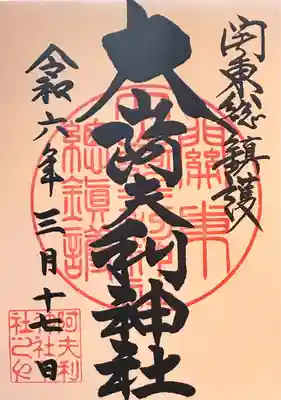 関東総鎮護
大山阿夫利神社
令和六年三月十七日
總鎮護
阿夫利